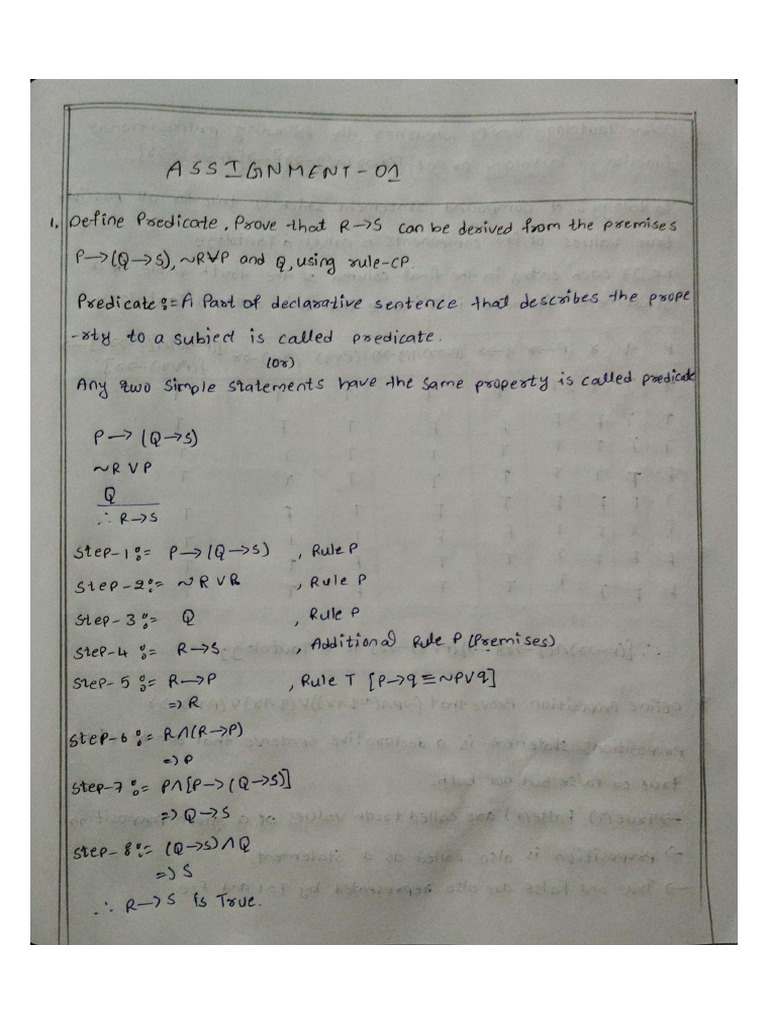 ASSIGNMENT-01
1. Define Predicate, Prove that R→S can be derived from the premises
P→(Q→S), ~R∨P and Q, using rule-CP.
Predicate:= A Part of declarative sentence that describes the prope
-rty to a subject is called predicate.
(or)
Any two simple statements have the same property is called predicate
P→(Q→S)
~R∨P
Q
∴ R→S
Step-1:= P→(Q→S) , Rule P
Step-2:= ~R∨R , Rule P
Step-3:= Q , Rule P
Step-4:= R→S , Additional Rule P (Premises)
Step-5:= R→P , Rule T [P→q≡~P∨q]
=> R
Step-6:= R∧(R→P)
=> P
Step-7:= P∧[P→(Q→S)]
=> Q→S
Step-8:= (Q→S)∧Q
=> S
∴ R→S is True.